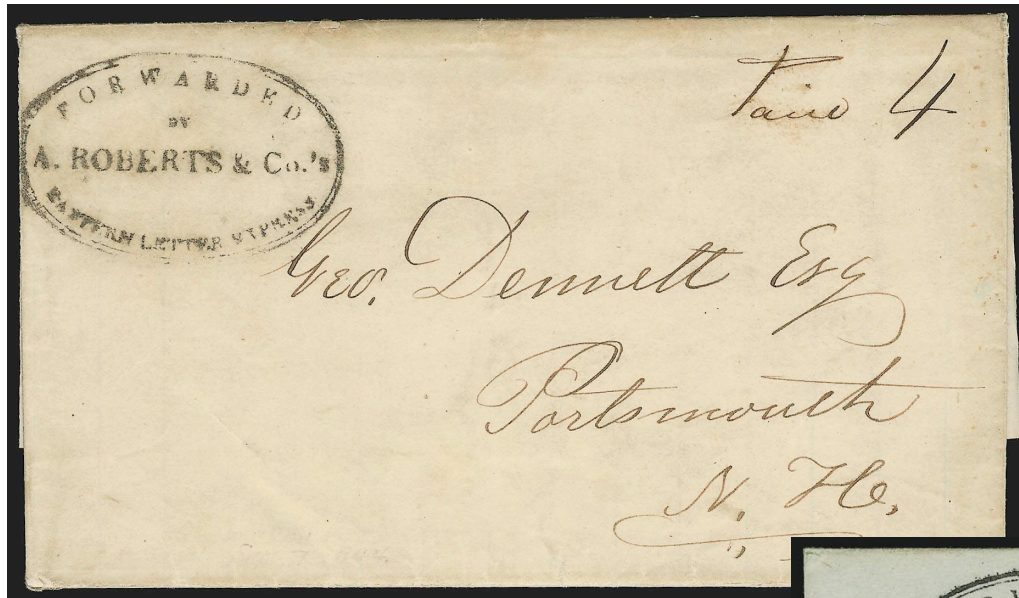 FORWARDED
BY
A. ROBERTS & Co.'s
EASTERN LETTER EXPRESS
4
Geo. Dennett Esq
Portsmouth
N. H.